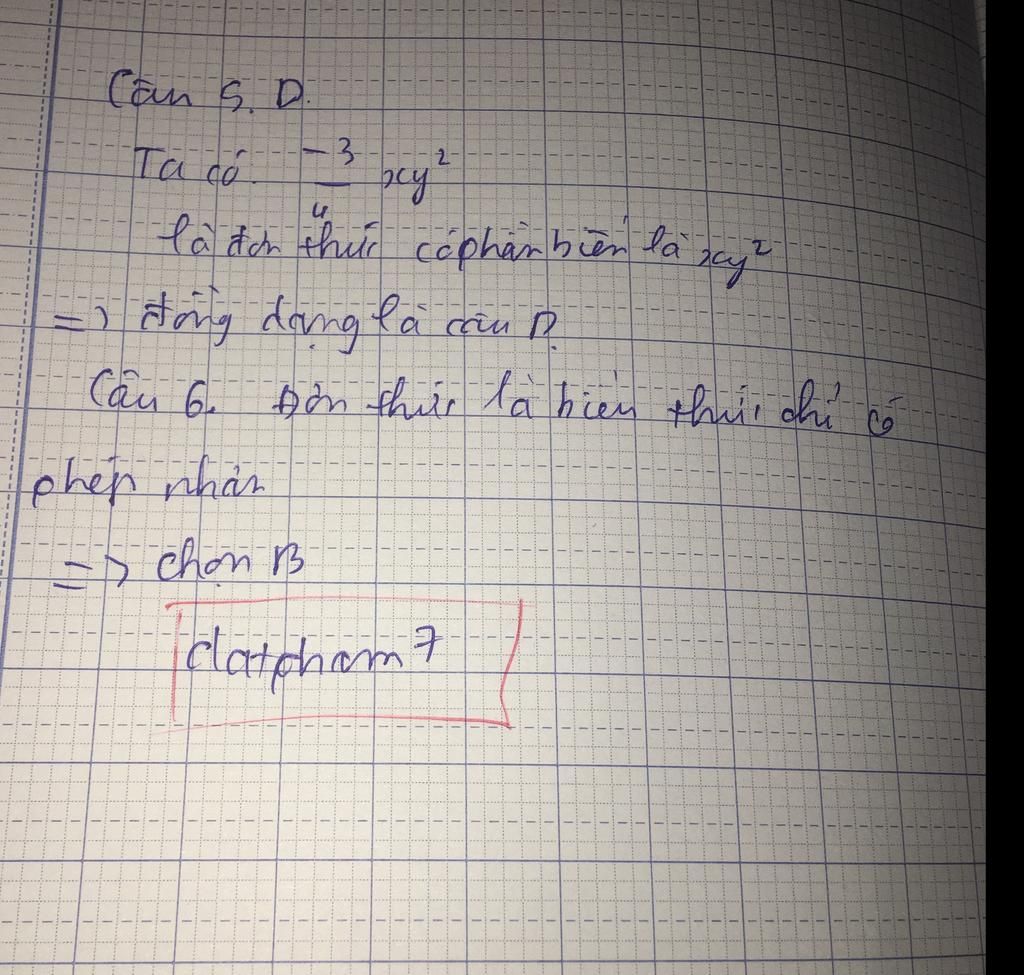 Câu 5. D.
Ta có. -3/4 xy²
là đơn thức có phần biến là xy²
=> đồng dạng là câu D.
Câu 6. Đơn thức là biểu thức chỉ có
phép nhân
=> chọn B
datpham7